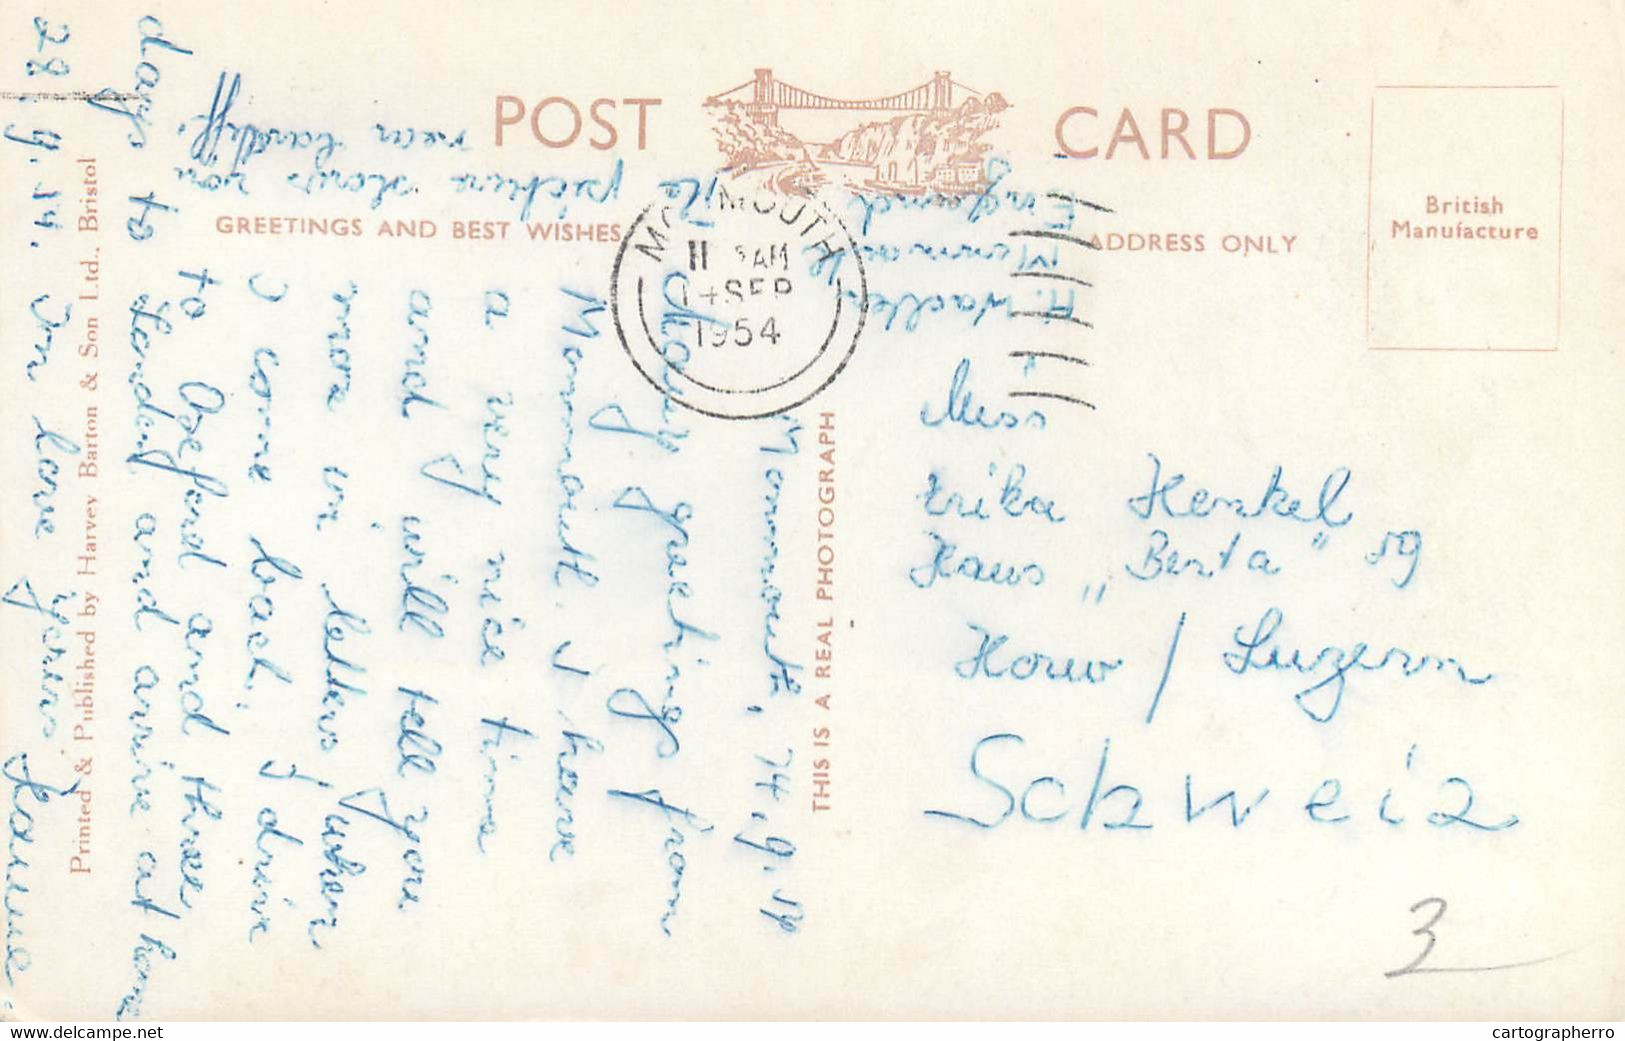 POST CARD
GREETINGS AND BEST WISHES
ADDRESS ONLY
British
Manufacture
MONMOUTH
11 AM
14 SEP
1954
THIS IS A REAL PHOTOGRAPH
Printed & Published by Harvey Barton & Son Ltd., Bristol
Monmouth, 14.9.54
Many greetings from
Monmouth. I have
a very nice time
and will tell you
more in letters, when
I come back. I drive
to Oxford and three
days to London and arrive at home
22.9.54. In love yours
Miss
Erika Henkel
Haus „Berta" 59
Horw / Luzern
Schweiz
Monmouth
England
The picture shows you
near Cardiff.
3
cartographerro
www.delcampe.net